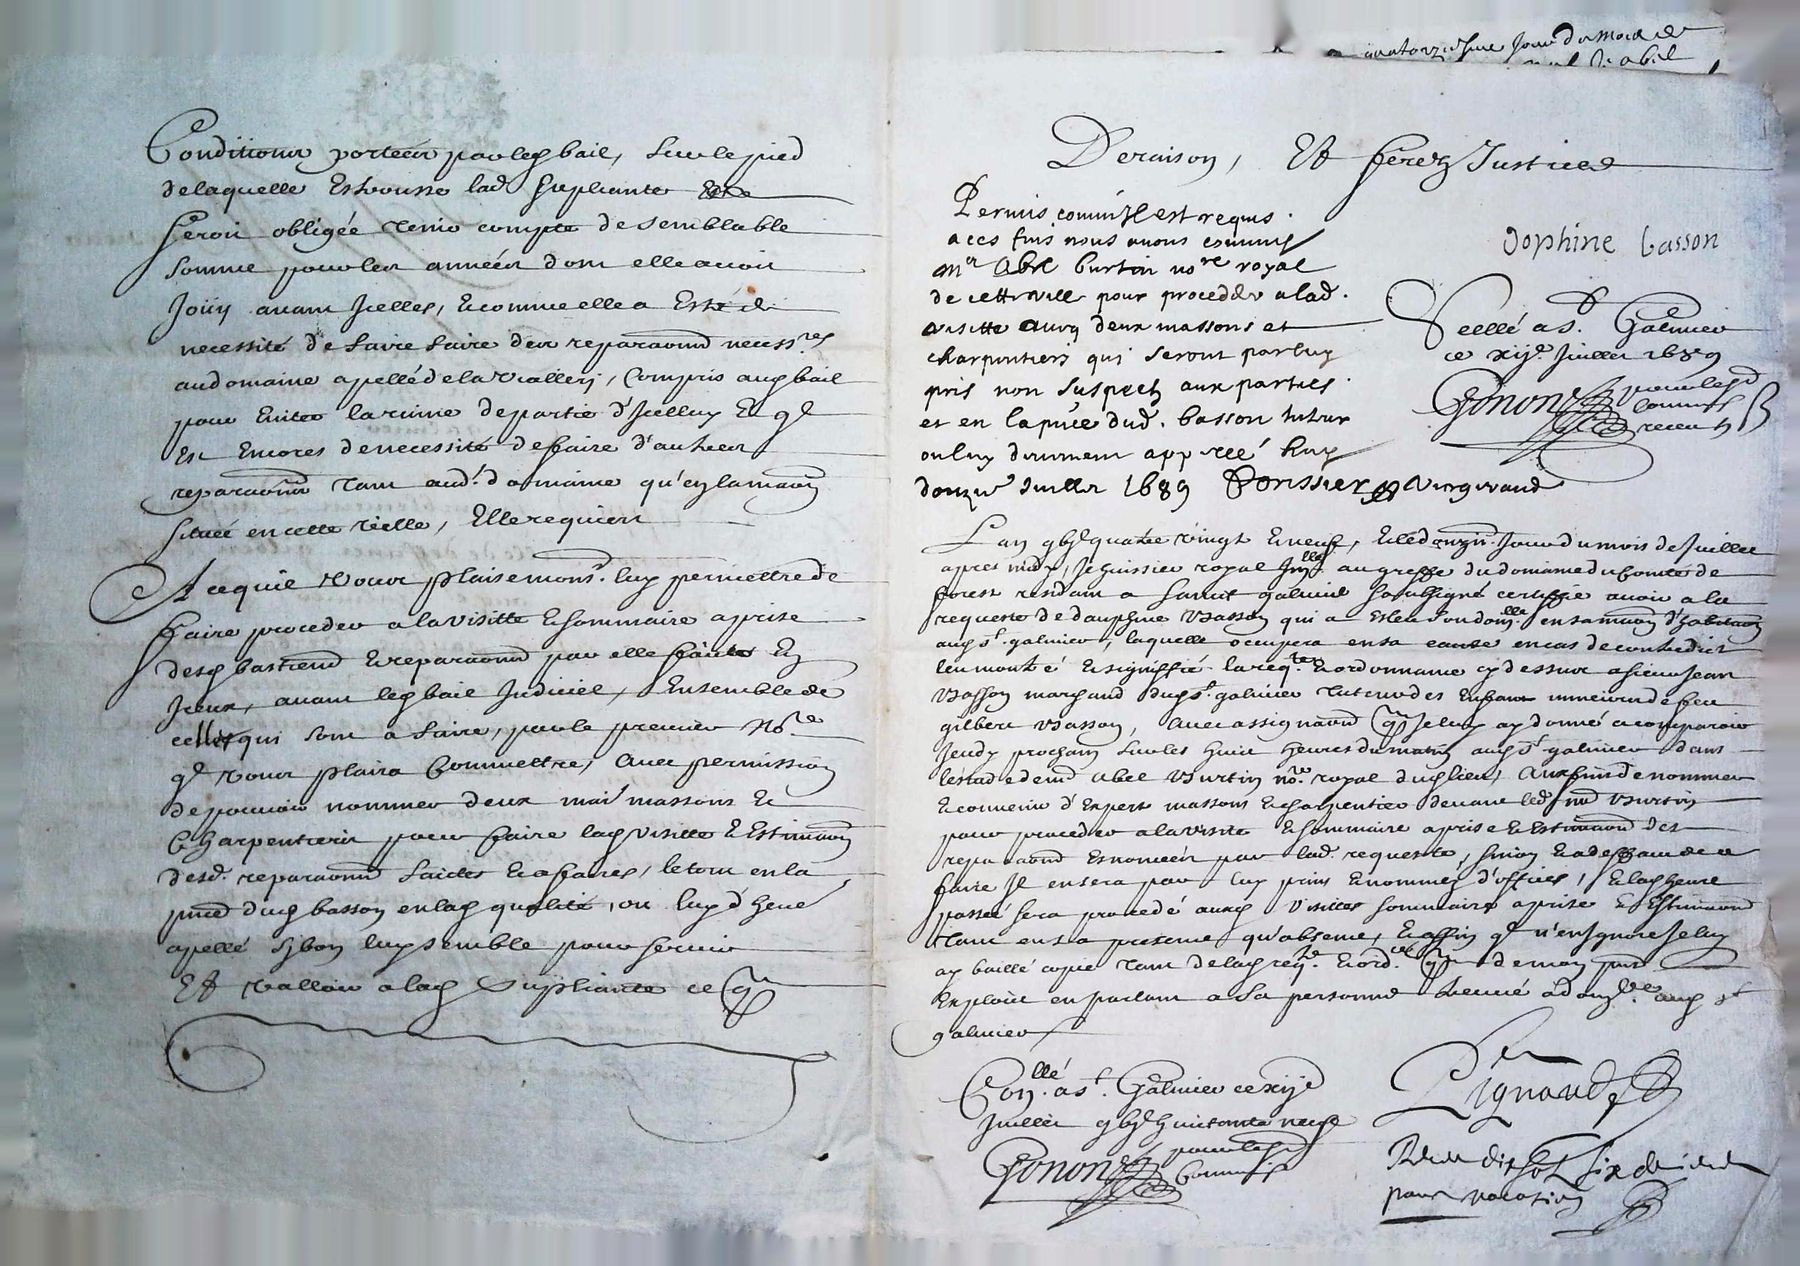 Conditions portées par lesd bail, sur le pied
de laquelle Esbrousse lad. supliante
seroit obligée tenir compte de semblable
somme pour les années dont elle avoit
Jouy avant Jcelles, Et comme elle a Esté de
necessité de faire faire des reparaons necess.res
au domaine apellé de la Viallery, Compris aud bail
pour Eviter la ruine de partie d'Jcelluy Et q.l
Est Encores de necessité de faire d'autres
reparaons tant aud. domaine qu'en la maison
située en cette ville, Elle requiert
A ce qu'il vous plaise mons. luy permettre de
faire proceder a la visitte & sommaire aprise
desd bastiens & reparaons par elle faictes En
Jceux, avant led bail Judiciel, Ensemble de
celles qui sont a faire, par le premier No.re
q.l vous plaira Commettre, avec permission
de pouvoir nommer deux mais massons Et
Charpentiers pour faire lad visitte & Estimaon
desd. reparaons faictes & a faire, le tout en la
pnce dud basson en lad qualité, ou luy d'heue
apellé sy bon luy semble pour servir
Et valloir a lad Supliante ce q
quatorziesme Jour du mois de
abel
De raison, Et ferez Justice
Permis comm'Jl est requis.
a ces fins nous avons commis
M.r Abel burtin no.re royal
de cette ville pour proceder a lad.
visitte avecq deux massons et
charpentiers qui seront par luy
pris non suspects aux parties.
et en la pñce dud. basson tuteur
ou luy deuement appellé huy
douzie Juillet 1689 Ponssier Vingiraud
dophine basson
Scellé a S.t Galmier
ce xije Juillet 1689
Gonon pour led
Commis
L'an gbjc quatre vingt & neuf, & le douzie. Jour du mois de Juillet
apres midy, Je huissier royal au greffe du domaine du Comté de
forest residant a Sainct galmier soubsigné certiffie avoir a la
requeste de dauphine Basson qui a Esleu son domille. en sa maison d'habitaon
aud S.t galmier, laquelle occupera en sa cause en cas de contredict
leu monstré & signiffié la req.te & ordonnance cy dessus a sieur Jean
Basson marchand dud S.t galmier tuteur des Enfans mineurs de feu
gilbert Basson, avec assignaon q Je luy ay donné a comparoir
Jeudy prochain sur les huict heures du matin aud S.t galmier dans
l'estude de me abel Burtin no.re royal dud lieu, aux fins de nommer
& convenir d'Expert massons & charpentier devant led me Burtin
pour proceder a la visite & sommaire aprise & Estimaon des
reparaons Esnoncées par lad. requeste, sinon & a deffaut de ce
faire Jl en sera par luy pris & nommés d'offices, & lad heure
passée sera procedé auxd visites sommaire aprise & Estimaon
tant en sa presence qu'absence, & affin q.l n'en Jgnore Je luy
ay baillé copie tant de lad req.te & ord.ce q de mon pnt
Exploict en parlant a sa personne treuvé aud S.t
galmier
Con.llé a S.t Galmier ce xije
Juillet gbjc huictante neuf
Gonon pour led
Commis
Pignard
pour vacation